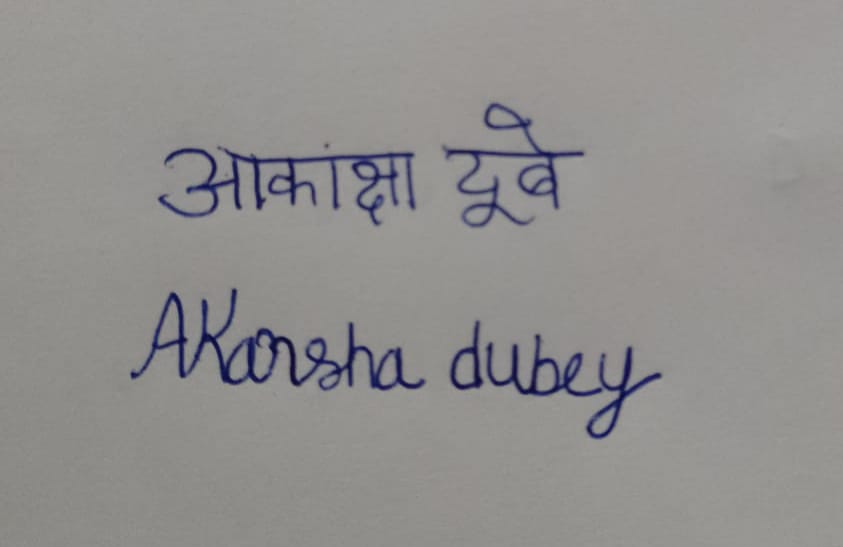 आकांक्षा दूबे
AKansha dubey